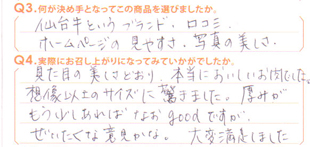 Q3.何が決め手となってこの商品を選びましたか。
仙台牛というブランド・口コミ・
ホームページの見やすさ・写真の美しさ.
Q4.実際にお召し上がりになってみていかがでしたか。
見た目の美しさどおり、本当においしいお肉でした。
想像以上のサイズに驚きました。厚みが
もう少しあればなお goodですが、
ぜいたくな意見かな。 大変満足しました